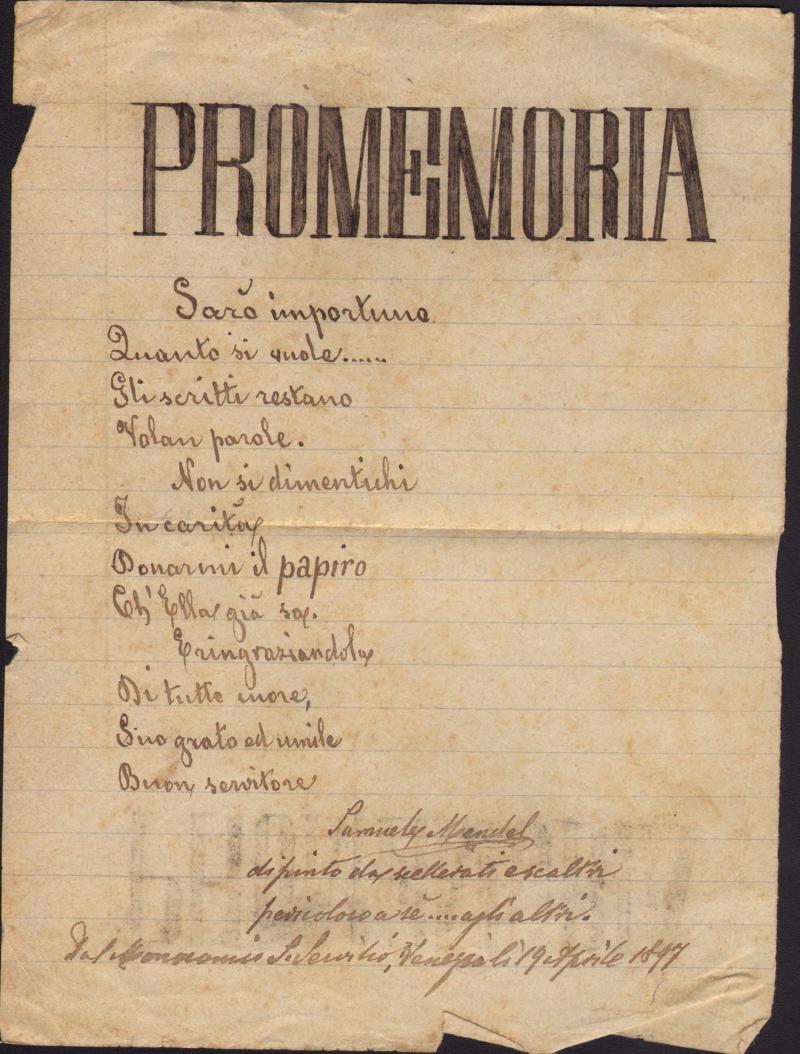 PROMEMORIA
Sarò importuno
Quanto si vuole......
Gli scritti restano
Volan parole.
Non si dimentichi
In carità
Donarmi il papiro
Ch' Ella già sa.
E ringraziandola
Di tutto cuore,
Suo grato ed umile
Buon servitore
Samuele Mendel
dipinto da scellerati e scaltri
pericoloso a sè.....agli altri.
Dal S. Servilio, Venezia li 19 Aprile 1897